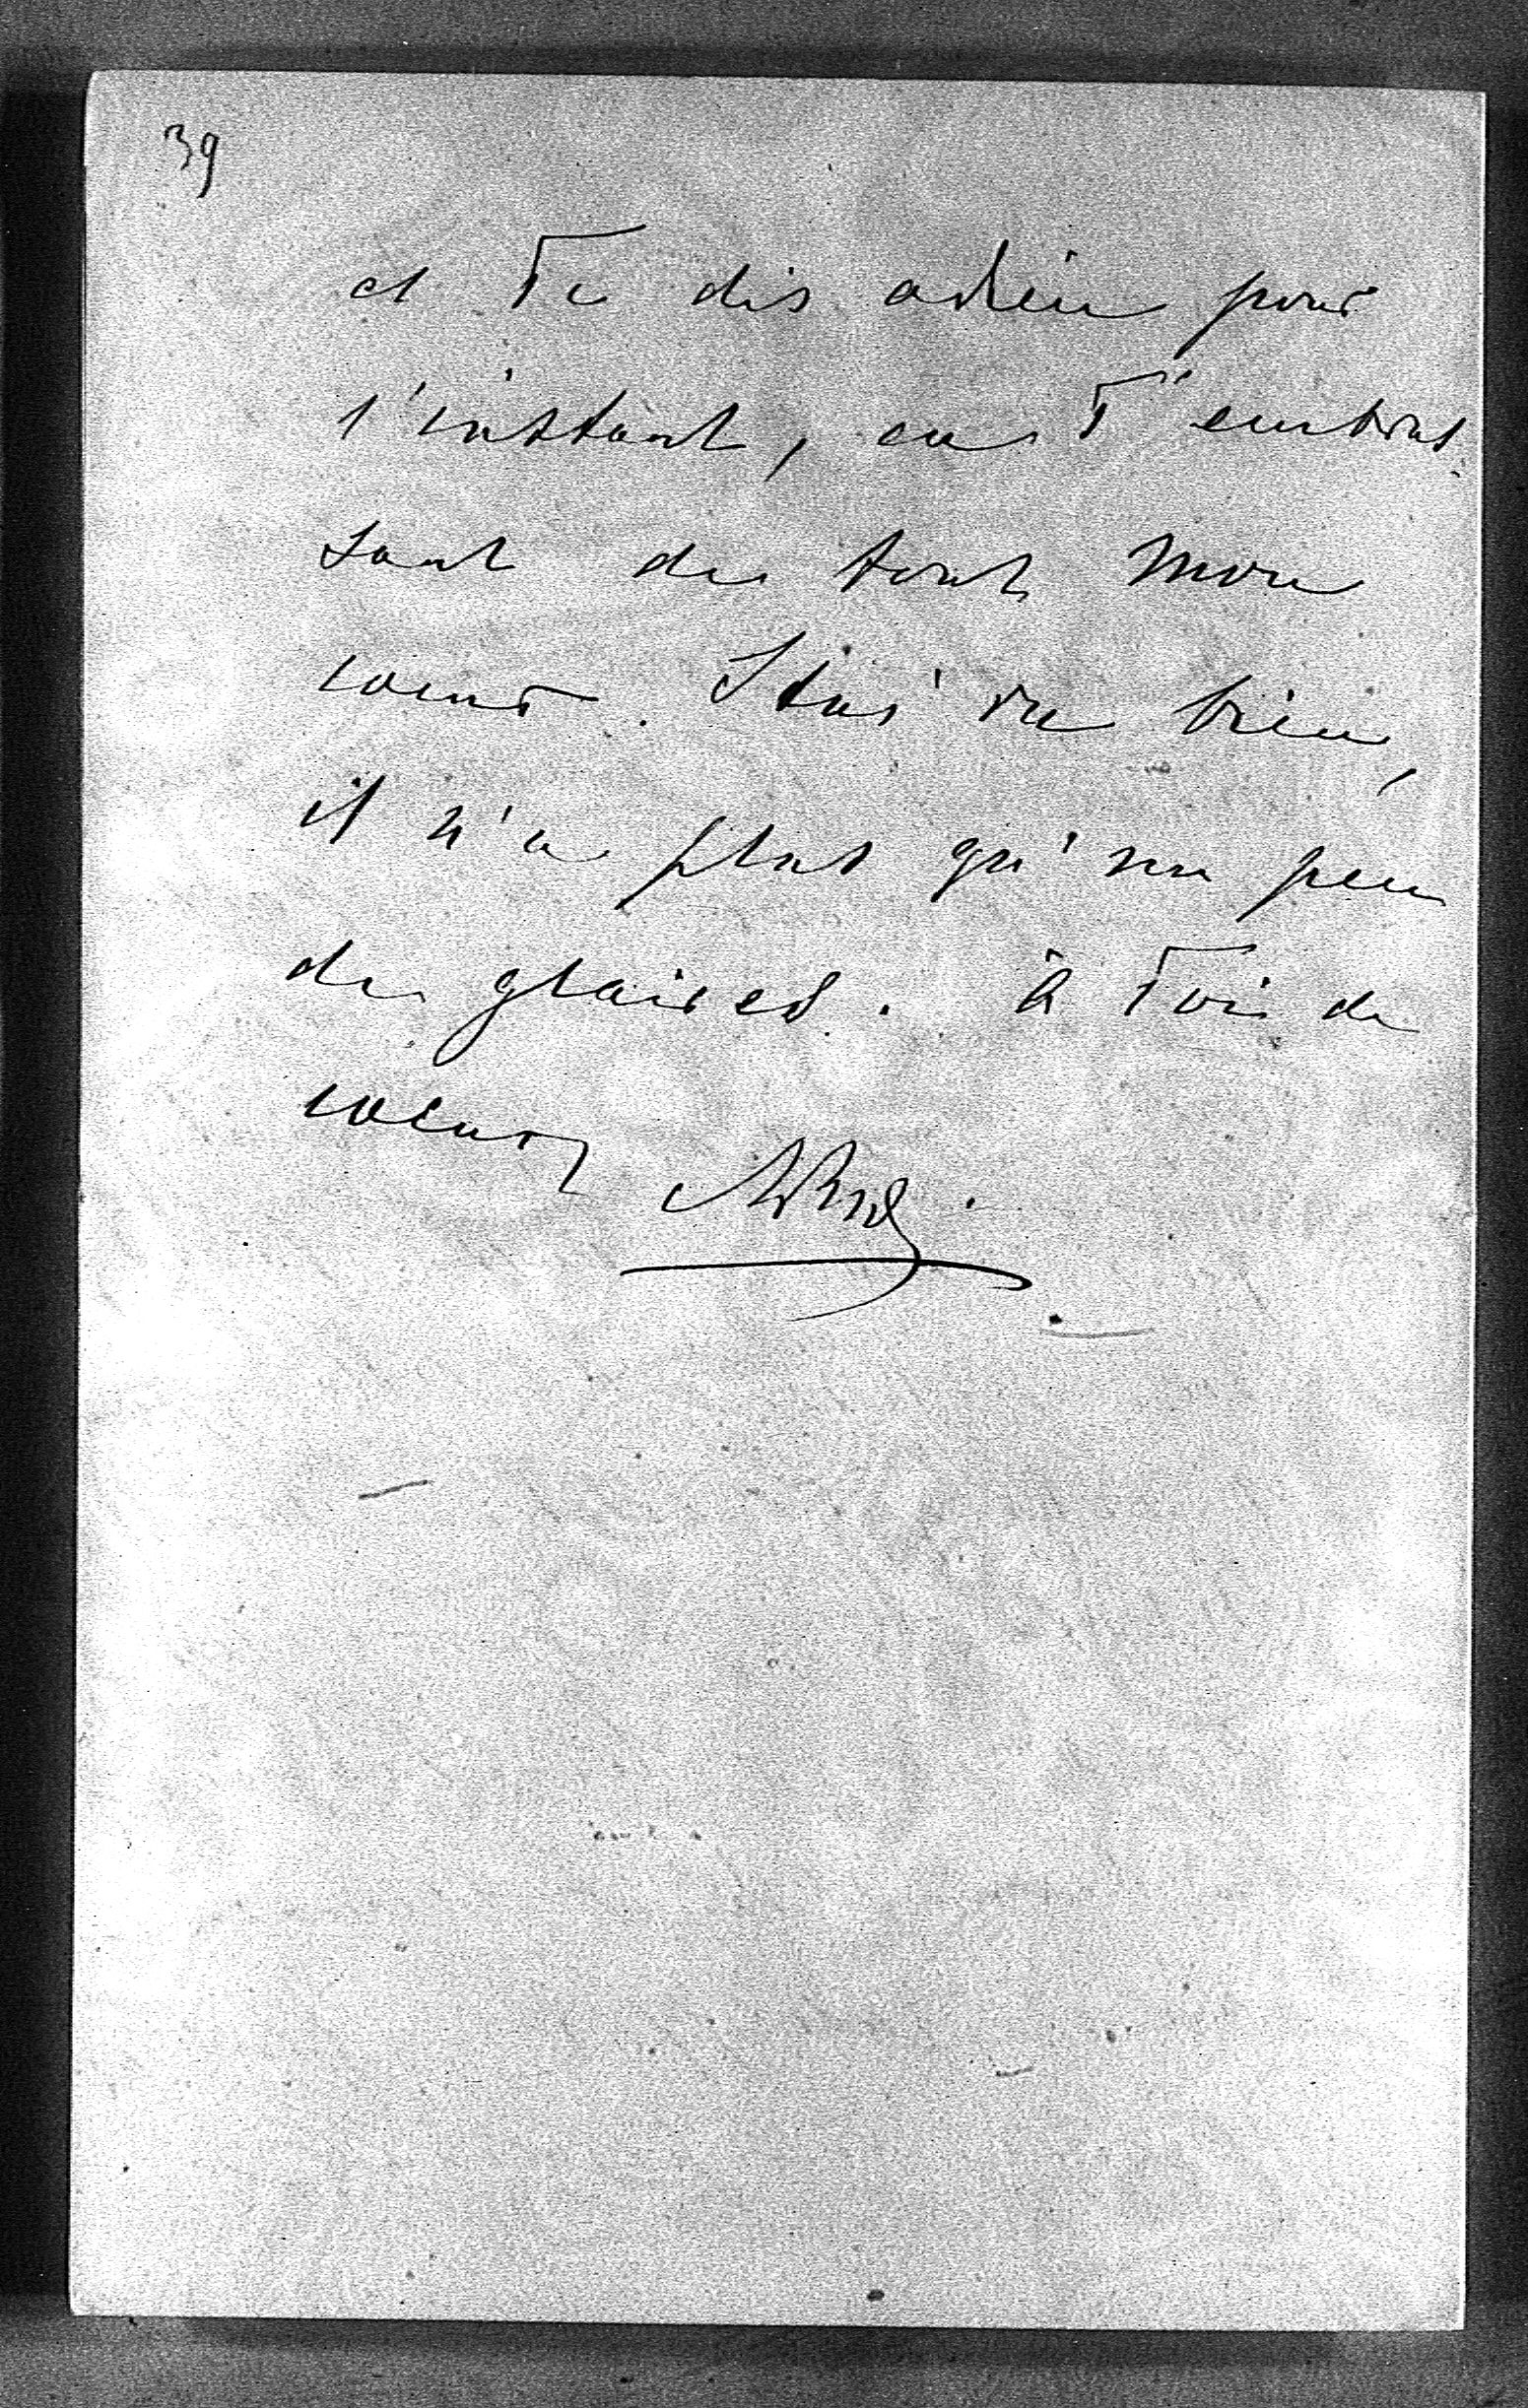 39
et Te dis adieu pour
l'instant, en T'embras-
sant de tout mon
cœur. Stasi va bien,
il n'a plus qu'un peu
de glaires. à Toi de
cœur,